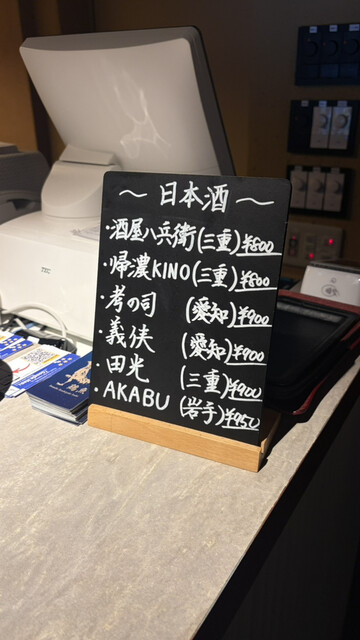 ～ 日本酒 ～
・酒屋八兵衛(三重)¥800
・帰濃KINO(三重)¥800
・考の司 (愛知)¥900
・義侠 (愛知)¥900
・田光 (三重)¥900
・AKABU (岩手)¥950